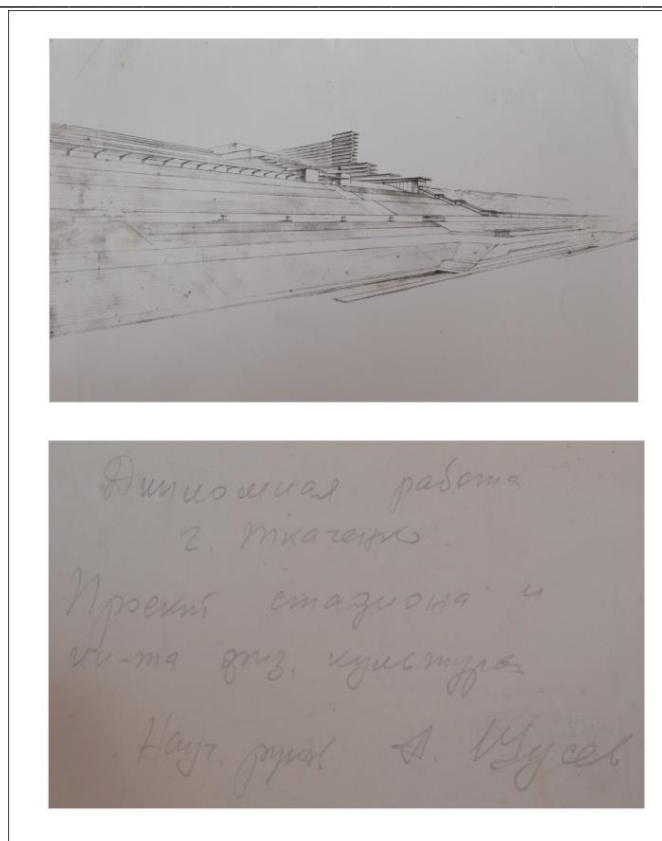 Дипломная работа
г. Ткаченко
Проект стадиона и
ин-та физ. культуры
Науч. рук. А. Щусев